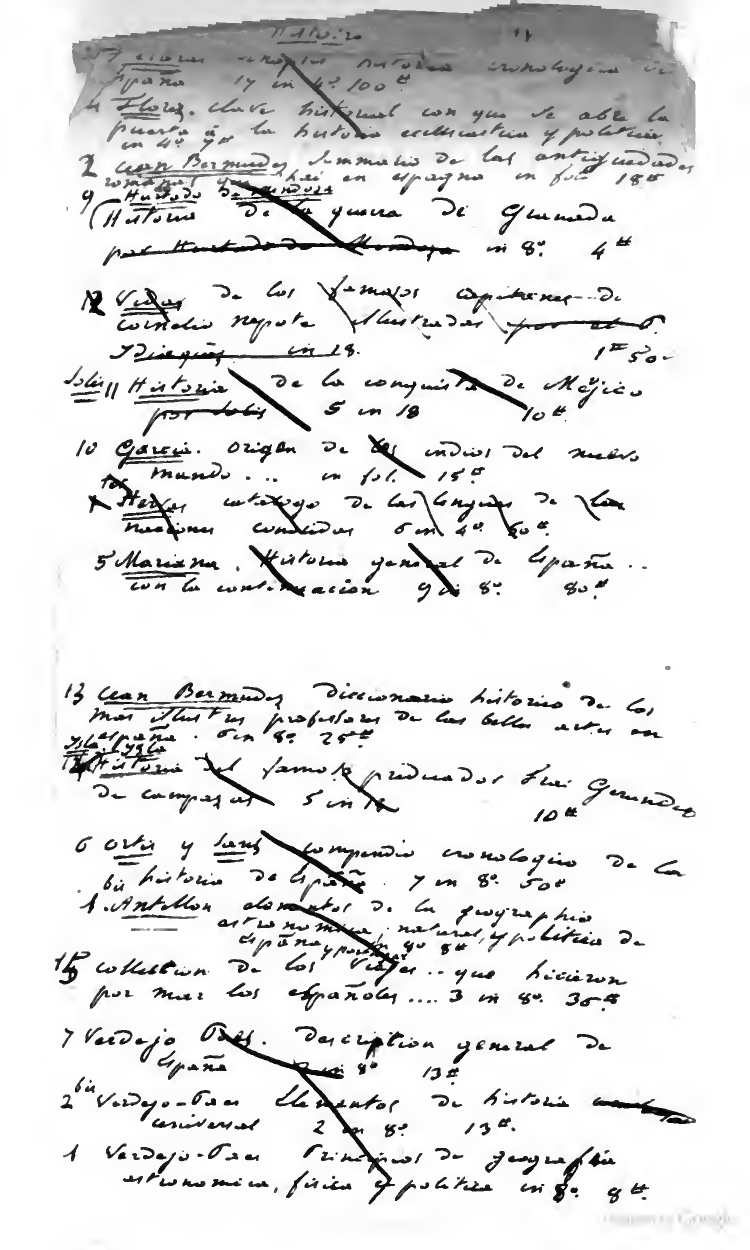 Histoire
historia cronologica de
españa 17 in 4º 100 ₶
4 Florez. clave historial con que se abre la
puerta à la historia ecclesiastica y politica
in 4º 7 ₶
2 Cean Bermudez Summario de las antiguedades
romanas que hai en espagna in fol. 18 ₶
9 Hurtado de Mendoza
Historia De la guerra di Granada
por Hurtado de Mendoza in 8º. 4 ₶
12 Vidas de los famosos capitanes de
cornelio nepote illustradas por el P.
in 18. 1 ₶ 50
Solis 11 Historia de la conquista de Méjico
por Solis 5 in 18 10 ₶
10 Garcia. Origen de los indios del nuevo
mundo ... in fol. 15 ₶
Hervas catalogo de las lenguas de las
naciones conocidas 6 in 4º. 60 ₶
5 Mariana. Historia general de España ..
con la continuacion 9 in 8º 80 ₶
13 Cean Bermudez Diccionario historico de los
mas illustres profesores de las bellas artes en
españa. 6 in 8º 25 ₶
Isla
Historia del famoso predicador Frai Gerundio
de campazas 5 in 18 10 ₶
6 Ortiz y Sanz compendio cronologico de la
bis historia de España. 7 in 8º. 50 ₶
1. Antillon elementos de la geographia
astronomica, natural, y politica de
España y portugal in 8º 8 ₶
15 collection de los Viages .. que hicieron
por mar los españoles .... 3 in 8º. 36 ₶
7 Verdejo Paez. Description general de
España 2 in 8º 13 ₶
2 bis Verdejo-Paez Elementos de historia
universal 2 in 8º 13 ₶.
1 Verdejo-Paez Principios de geografia
astronomica, fisica y politica in 8º. 8 ₶.